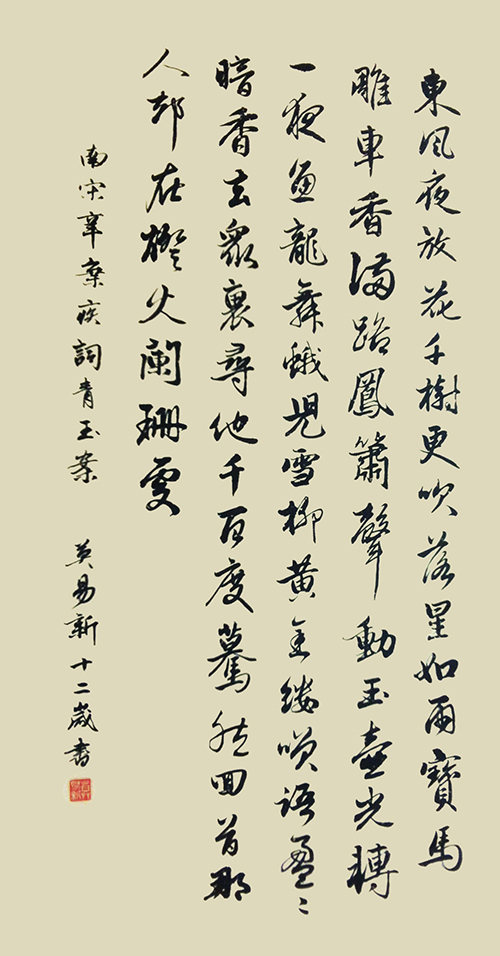 東風夜放花千樹更吹落星如雨寶馬
雕車香滿路鳳簫聲動玉壺光轉
一夜魚龍舞蛾兒雪柳黃金縷笑語盈〻
暗香去眾裏尋他千百度驀然回首那
人却在燈火闌珊處
南宋辛棄疾詞青玉案 吳易新十二歲書